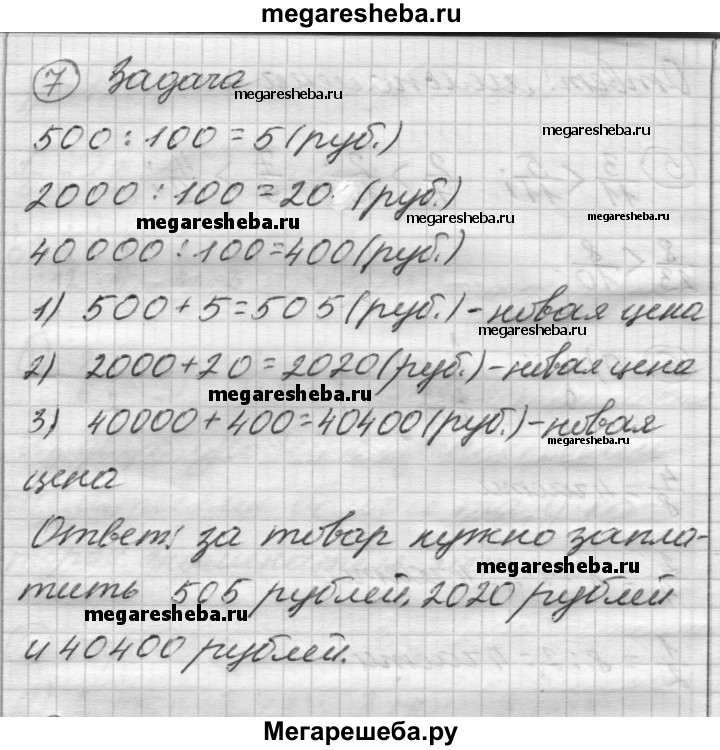 megaresheba.ru
7 Задача
megaresheba.ru
500 : 100 = 5 (руб.)
megaresheba.ru
2000 : 100 = 20 (руб.)
megaresheba.ru
megaresheba.ru
40000 : 100 = 400 (руб.)
1) 500 + 5 = 505 (руб.) - новая цена
megaresheba.ru
2) 2000 + 20 = 2020 (руб.) - новая цена
megaresheba.ru
3) 40000 + 400 = 40400 (руб.) - новая
megaresheba.ru
цена
Ответ: за товар нужно запла-
megaresheba.ru
тить 505 рублей, 2020 рублей
megaresheba.ru
и 40400 рублей.
Мегарешеба.ру